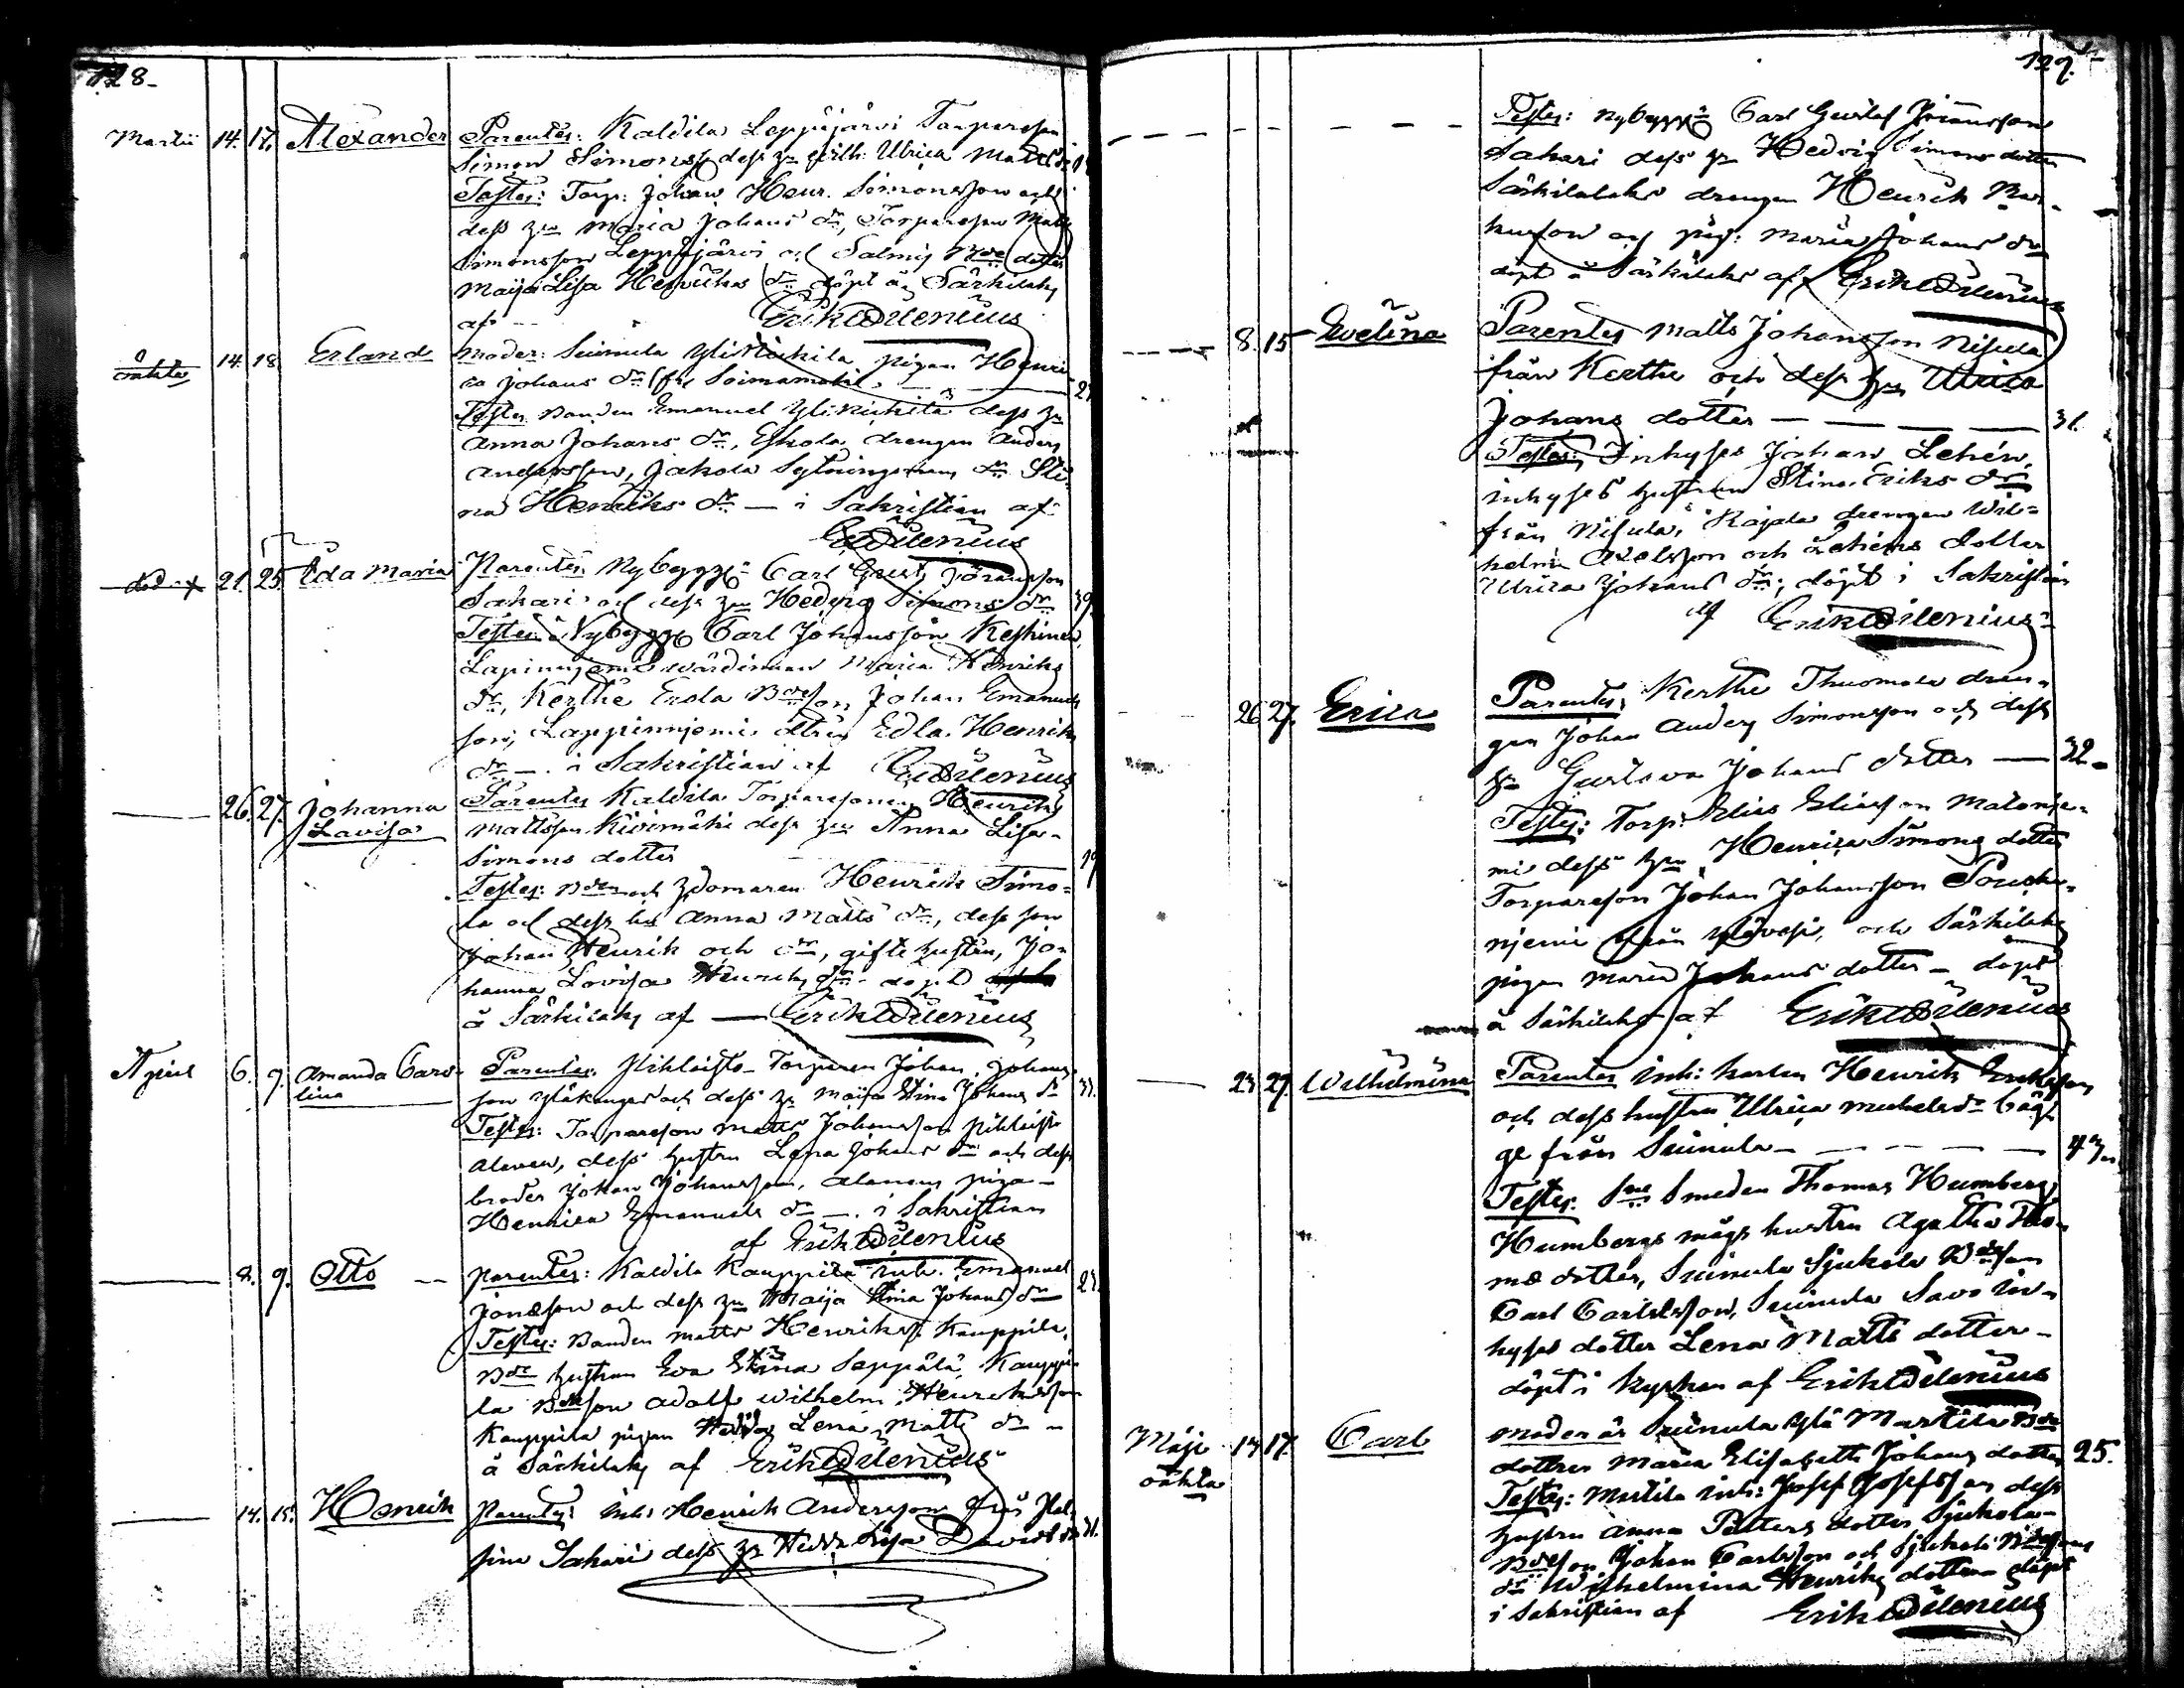 128.
Martii 14. 17. Alexander Parentes: Kaldila Leppäjärvi Torparesonen
Simon Simonss. dess hu Wilh: Ulrica Matts dr
Testes: Torp: Johan Henr. Simonsson och
dess hu Maria Johans dr, Torpareson Matts
Simonsson Leppäjärvi och Salmis Bde dotter
Maija Lisa Henriks dr döpt å Särkilaks
af Erik Dilenius
oäkta 14. 18. Erland Moder: Suinula pigan Henri-
ca Johans dr
Testes Bonden Emanuel dess hu
Anna Johans dr, Eskola drengen Anders
Andersson, Jakola dr Sti-
na Henriks dr — i Sakristian af
E Dilenius
död 21. 25. Ida Maria Parentes Nybygg: Carl Gust: Göransson
Sakari och dess hu Hedvig Simons dr 39.
Testes: Nybygg Carl Johansson Keskinen,
Lapinnjemi värdinnan Maria Henriks
dr, Kerthe Erola Bdeson Johan Emanuels
son, Lappinnjemi Edla Henriks
dr — i Sakristian af E Dilenius
26. 27. Johanna Parentes Kaldila Torparesonen Henrik
Lovisa Mattsson Kivimäki dess hu Anna Lisa
Simons dotter 19
Testes: Bden och Henrik Simo-
la och dess hu Anna Matts dr, dess son
Johan Henrik och dr, gifte hustru, Jo-
hanna Lovisa Henriks dr döpt
å Särkilaks af — Erik Dilenius
April 6. 9. Amanda Caro- Parentes: Torparen Johan Johans-
lina son och dess hu Maija Stina Johans dr 33.
Testes: Torpareson Matts Johansson
Alanen, dess hustru Lena Johans dr och dess
broder Johan Johansson, Alanens piga
Henrica Emanuels dr — i Sakristian
af Erik Dilenius
8. 9. Otto — Parentes: Kaldila Kauppila inh. Emanuel
Jonasson och dess hu Maija Stina Johans dr
Testes: Bonden Matts Henrikss. Kauppila,
Bde hustrun Eva Stina Seppälä, Kauppi-
la Bdeson Adolf Wilhelm Henriksson
Kauppila pigan Lena Matts dr
å Särkilaks af Erik Dilenius
14. 15. Henrik Parentes: inh: Henrik Andersson från
Sakari dess hu Lisa Davids dr
129.
Testes: Nybygg Carl Gustaf Göransson
Sakari dess hu Hedvig Simons dotter
Särkilaks drengen Henrik Mar-
kusson och pig: Maria Johans dr
döpt å Särkilaks af Erik Dilenius
8. 15 Evelina Parentes Matts Johansson Nisula
från Kerthe och dess hu Ulrica
Johans dotter — — — 31.
Testes: Inhyses Johan Lehén,
inhyses hustrun Stina Eriks dr
från Nisula, Rajala drengen Wil-
helm Axelsson och Lehéns dotter
Ulrica Johans dr; döpt i Sakristian
af Erik Dilenius
26 27. Erica Parentes Kerthe Thuomola dren-
gen Johan Anders Simonsson och dess
hu Gustava Johans dotter — 32
Testes: Torp: Elias Eliasson Matonje-
mi dess hu Henrica Simons dotter
Torpareson Johan Johansson
njemi från och Särkilaks
pigan Maria Johans dotter — döpt
å Särkilaks af Erik Dilenius
23. 27. Wilhelmina Parentes inh: karlen Henrik Eriksson
och dess hustru Ulrica Michels dr bäg-
ge från Suinula — — — 43
Testes: Smeden Thomas Humberg,
Humbergs mågs hustru Agatha Tho-
mæ dotter, Suinula Sjukola Bdeson
Carl Carlsson, Suinula Savo in-
hyses dotter Lena Matts dotter
döpt i kyrkan af Erik Dilenius
Maji 14 17. Carl Moder är Suinula Ylä Martila Bde
oäkta dottren Maria Elisabeth Johans dotter 25.
Testes: Martila inh: Josef Josefsson dess
hustru Anna Petters dotter Sjukola
Bdeson Johan Carlsson och Sjukola Bdesons
dr Wilhelmina Henriks dotter döpt
i Sakristian af Erik Dilenius